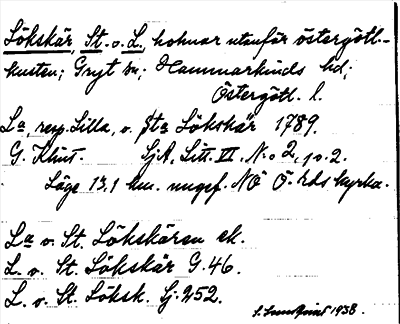 Lökskär, St. o. L., holmar utanför östergötl.-
kusten; Gryt sn; Hammarkinds hd;
Östergötl. l.
La, resp. Lilla, o. Sta Lökskär 1789.
G. Klint. SjA, Litt. VI, N:o 2, 1 o. 2.
Läge 13,1 km. ungef. NÖ Ö. Eds kyrka.
La o. St. Lökskären ek.
L. o. St. Lökskär G. 46.
L. o. St. Löksk. Sj. 252.
1938.